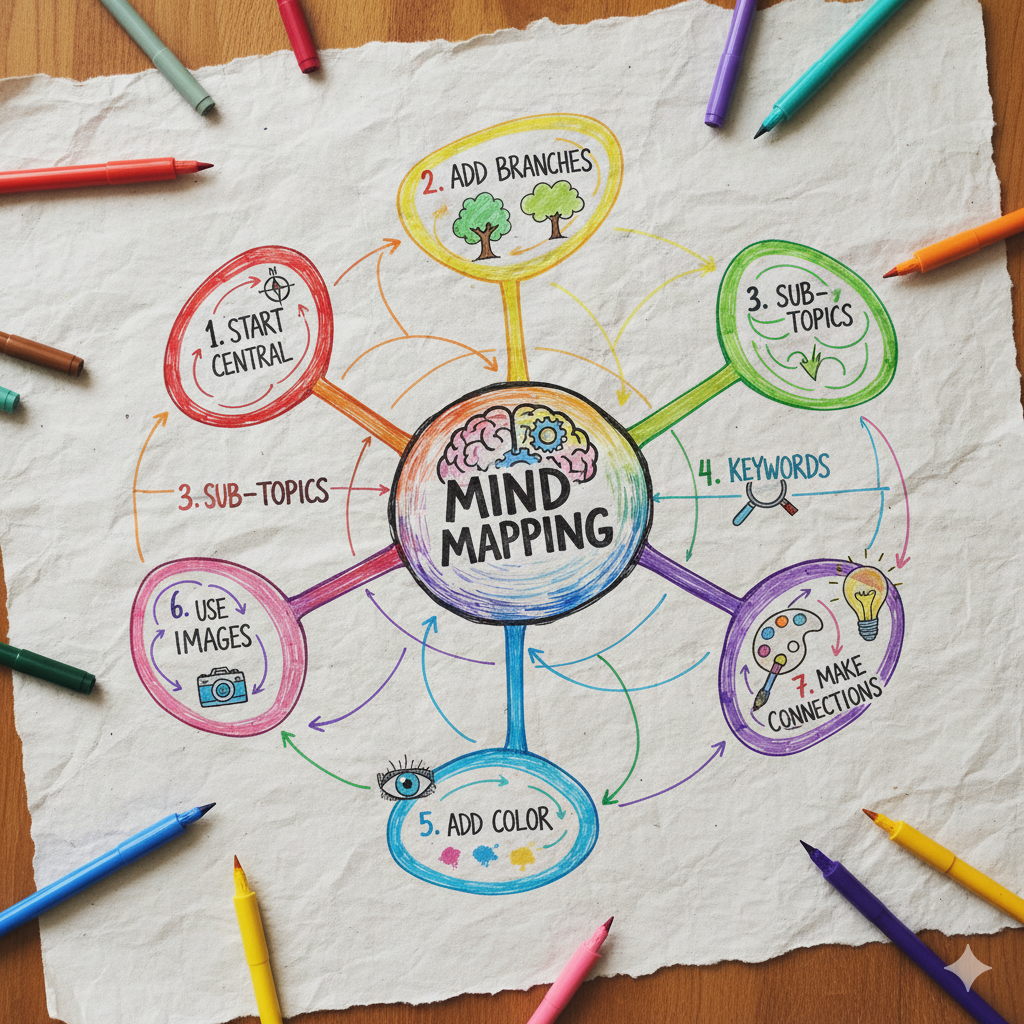 MIND
MAPPING
1. START
CENTRAL
N
2. ADD BRANCHES
3. SUB-
TOPICS
3. SUB-TOPICS
4. KEYWORDS
5. ADD COLOR
6. USE
IMAGES
7. MAKE
CONNECTIONS